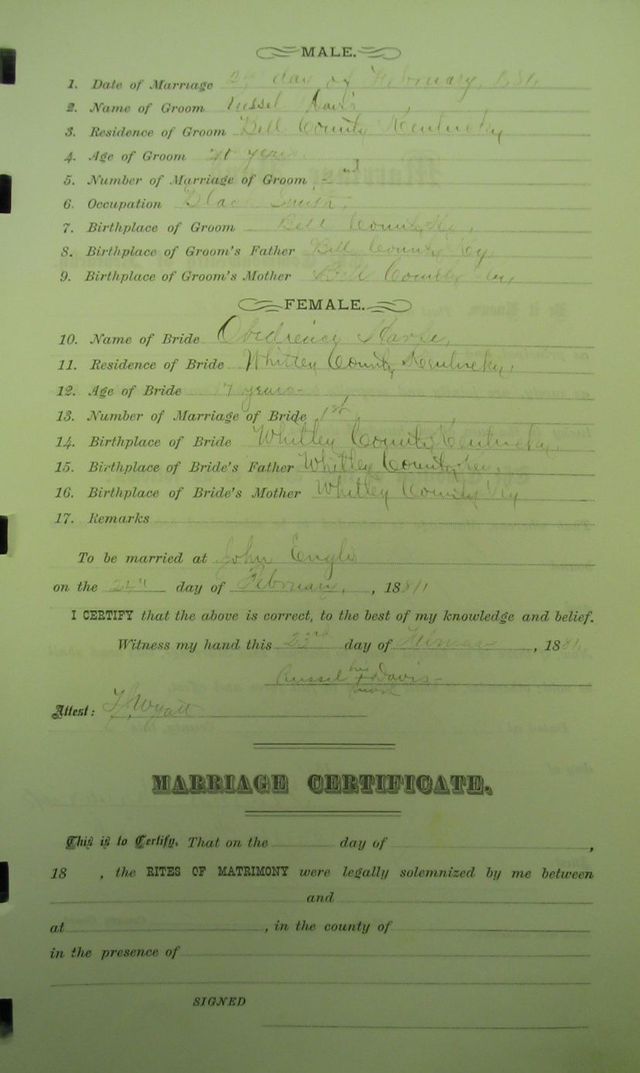 MALE.
1. Date of Marriage day of February, 1881
2. Name of Groom Russel Davis
3. Residence of Groom Bell County Kentucky
4. Age of Groom years
5. Number of Marriage of Groom
6. Occupation Black Smith,
7. Birthplace of Groom Bell County Ky,
8. Birthplace of Groom's Father Bell County Ky
9. Birthplace of Groom's Mother Bell County Ky,
FEMALE.
10. Name of Bride Obediency
11. Residence of Bride Whitley County Kentucky,
12. Age of Bride 17 years
13. Number of Marriage of Bride 1st
14. Birthplace of Bride Whitley County Kentucky,
15. Birthplace of Bride's Father Whitley County Ky,
16. Birthplace of Bride's Mother Whitley County Ky
17. Remarks
To be married at John Engle
on the 24th day of February, , 1881
I CERTIFY that the above is correct, to the best of my knowledge and belief.
Witness my hand this 23rd day of February , 1881
Russel his x mark Davis
Attest: Wyatt
MARRIAGE CERTIFICATE.
This is to Certify, That on the day of ,
18 , the RITES OF MATRIMONY were legally solemnized by me between
and
at , in the county of
in the presence of
SIGNED